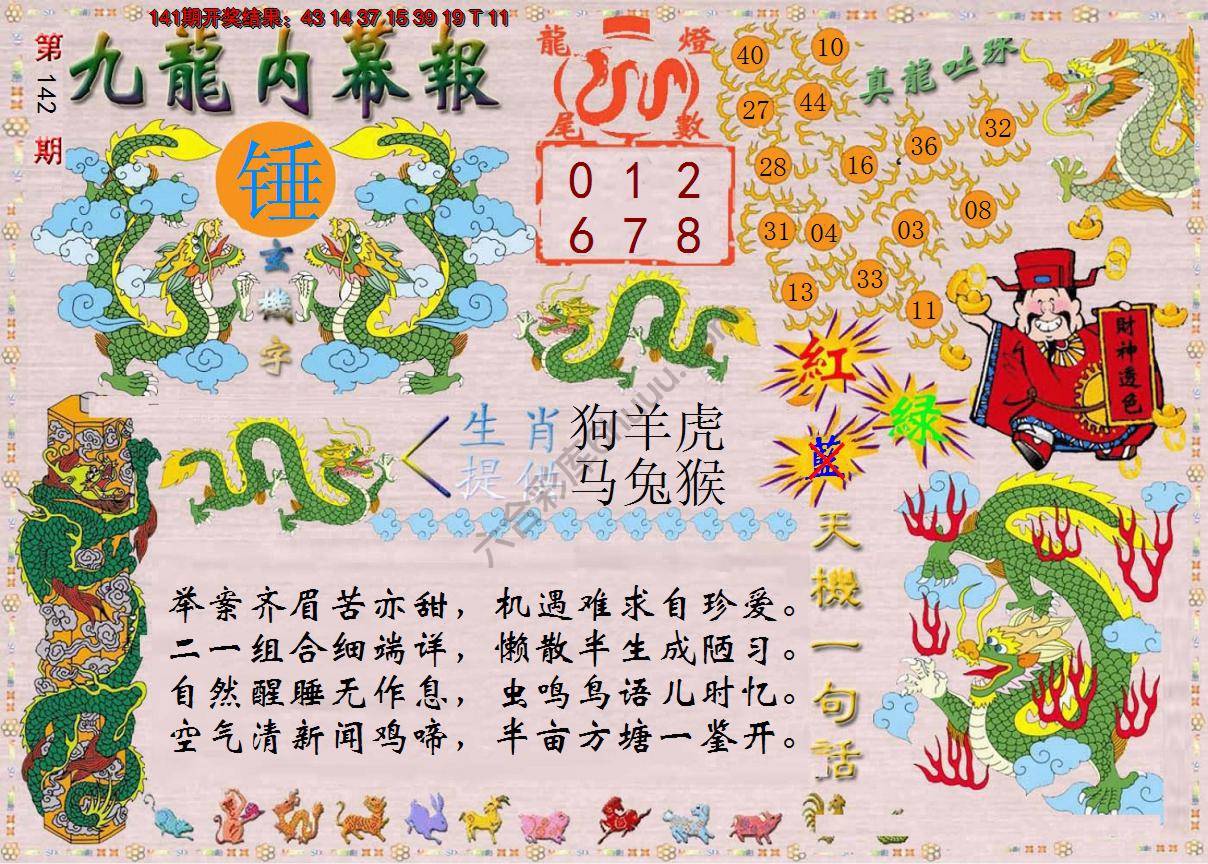 141期开奖结果：43 14 37 15 39 19 T 11
第142期
九龍内幕報
锤
玄機字
龍燈
尾數
0 1 2
6 7 8
真龍吐珠
40 10
27 44
28 16 36 32
31 04 03 08
13 33 11
財神透色
紅
綠
藍
生肖 狗羊虎
提供 马兔猴
天機一句話
举案齐眉苦亦甜，机遇难求自珍爱。
二一组合细端详，懒散半生成陋习。
自然醒睡无作息，虫鸣鸟语儿时忆。
空气清新闻鸡啼，半亩方塘一鉴开。